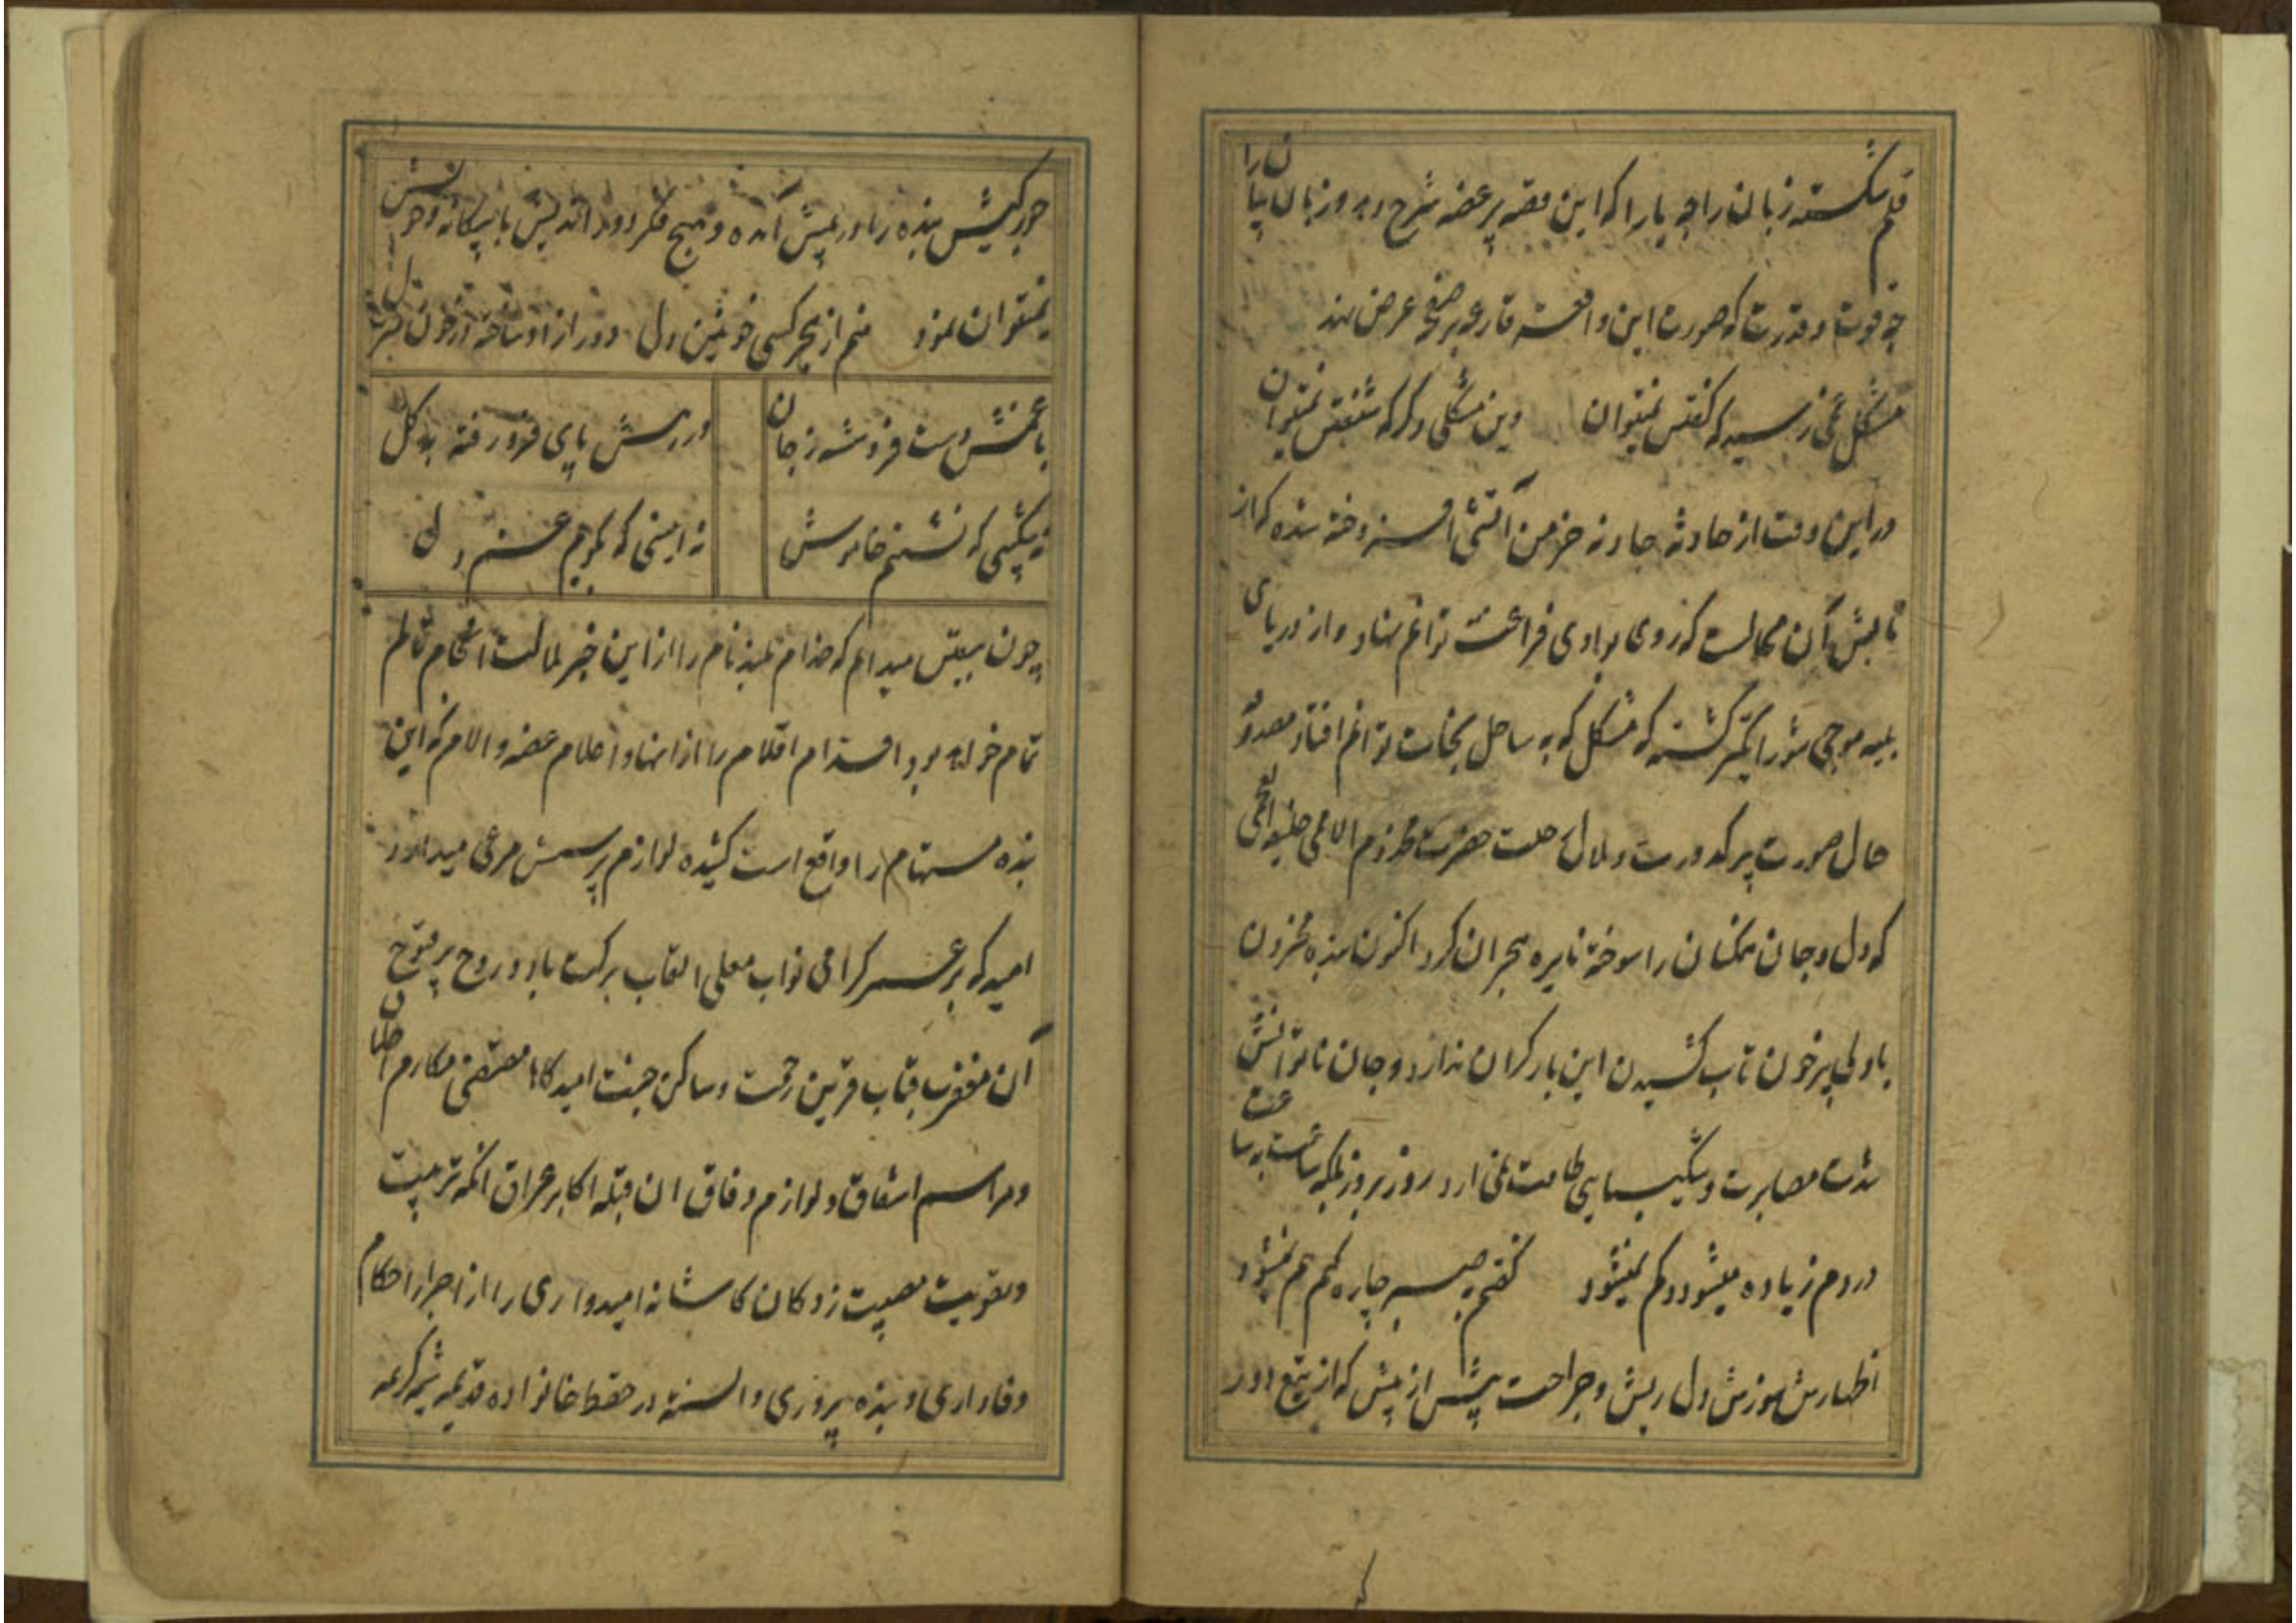 قلم شکسته زبان را چه یارا که این قصه پر غصه شرح دهد و زبان بیان را
چه قوت و قدرت که صورت این واقعه قارعه بر صفحه عرض نهد
مشکل غمی رسید که گفتن نمیتوان وین مشکلی دگر که نهفتن نمیتوان
در این وقت از حادثه جادثه خرمن آتشی افروخته شده که از
تابش آن محالست که روی بوادی فراغت توانم نهاد و از دریای
بلیه موجی شورانگیز گشته که مشکل که به ساحل نجات توانم افتاد مصدوقه
حال صورت پر کدورت و ملال رحلت حضرت مخدوم الاعمی
که دل و جان همکنان را سوخته نایره هجران کرد اکنون بنده محزون
با دلی پر خون تاب کشیدن این بار گران ندارد و جان ناتوانش
شدت مصابرت و شکیبایی طاقت نمی ارد روز بروز بلکه ساعت به ساعت
دردم زیاده میشود و کم نمیشود گفتم به صبر چاره کنم هم نمیشود
اظهار سوزش دل ریش و جراحت بیش از پیش که از تیغ دور
جور کیش بنده را در پیش آمده و هیچ فکر دور اندیش با بیگانه و خویش
نمیتوان نمود منم از هجر کسی خونین دل دور از او ساخته از خون منزل
با غمش دست فروشسته ز جان در رهش پای فرو رفته به گل
نه شکیبی که نشینم خاموش نه انیسی که بگویم غم دل
چون بیقین میدانم که خدام بلند نام را از این خبر ملالت انجام تالم
تمام خواهد بود اقدام اقلام را از انها و اعلام غصه و الام که این
بنده مستهام را واقع است کشیده لوازم پرسش مرعی میدارد
امید که بر عمر گرامی نواب معلی القاب برکت باد و روح پر فتوح
آن مغفرت قباب قرین رحمت و ساکن جنت امیدگاها مقتضی مکارم اخلاق
و مراسم اشفاق و لوازم وفاق ان قبله اکابر عراق انکه تربیت
و تقویت مصیبت زدگان کاشانه امیدواری را از اجرا احکام
وفاداری و بنده پروری دانسته در حفظ خانواده قدیمه شیمه کریمه